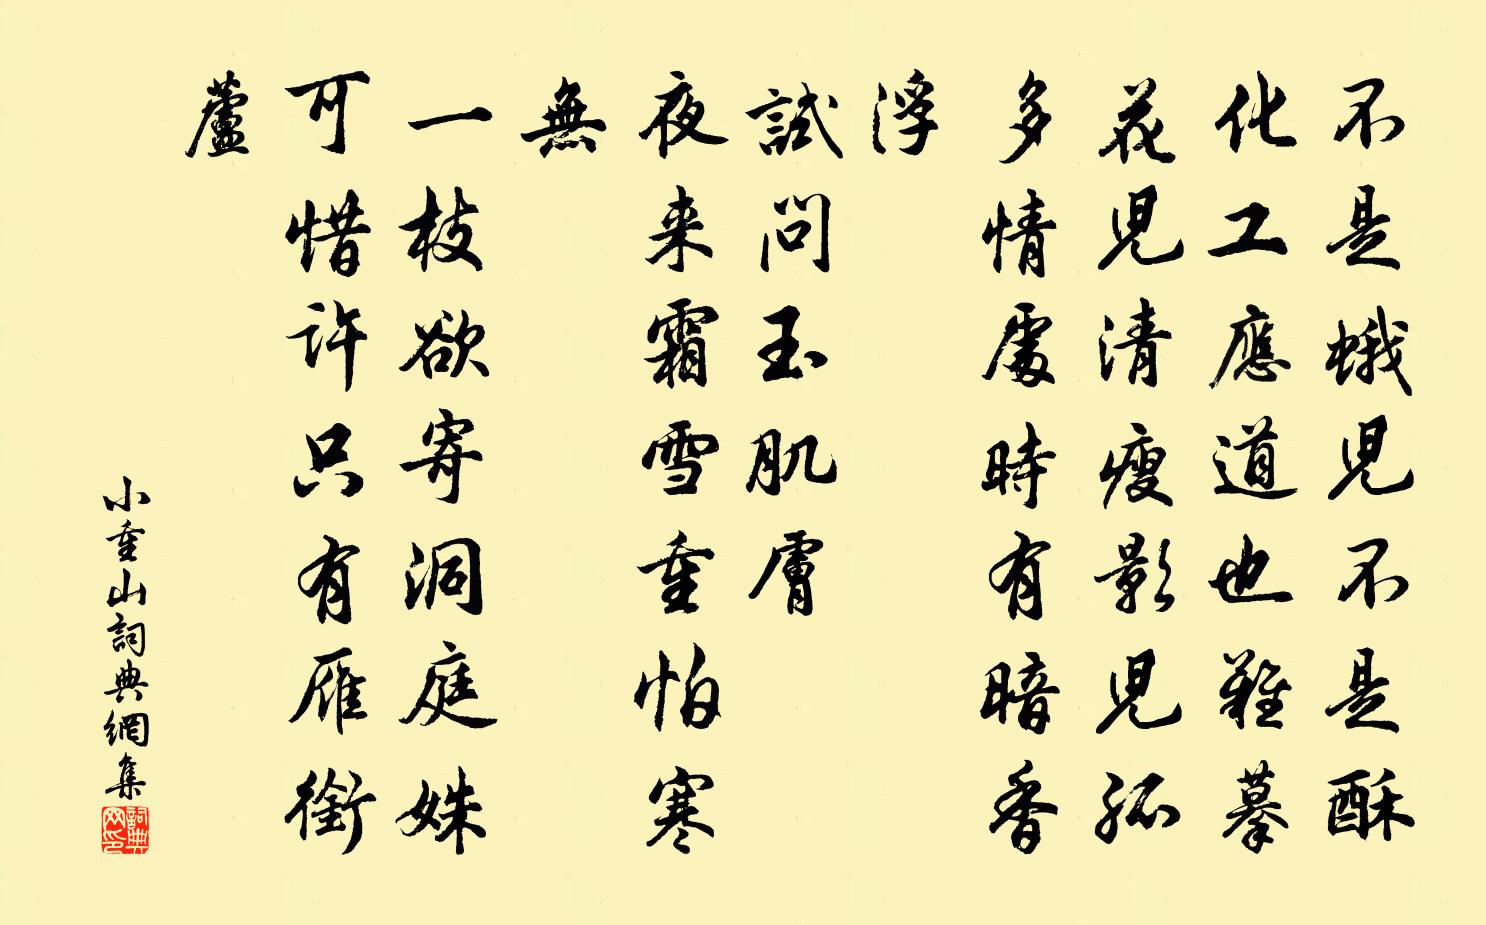 不是蛾兒不是酥
化工應道也難摹
花兒清瘦影兒孤
多情處時有暗香
浮
試問玉肌膚
夜来霜雪重怕寒
無
一枝欲寄洞庭姝
可惜許只有雁銜
蘆
小重山詞典網集
詞典網印